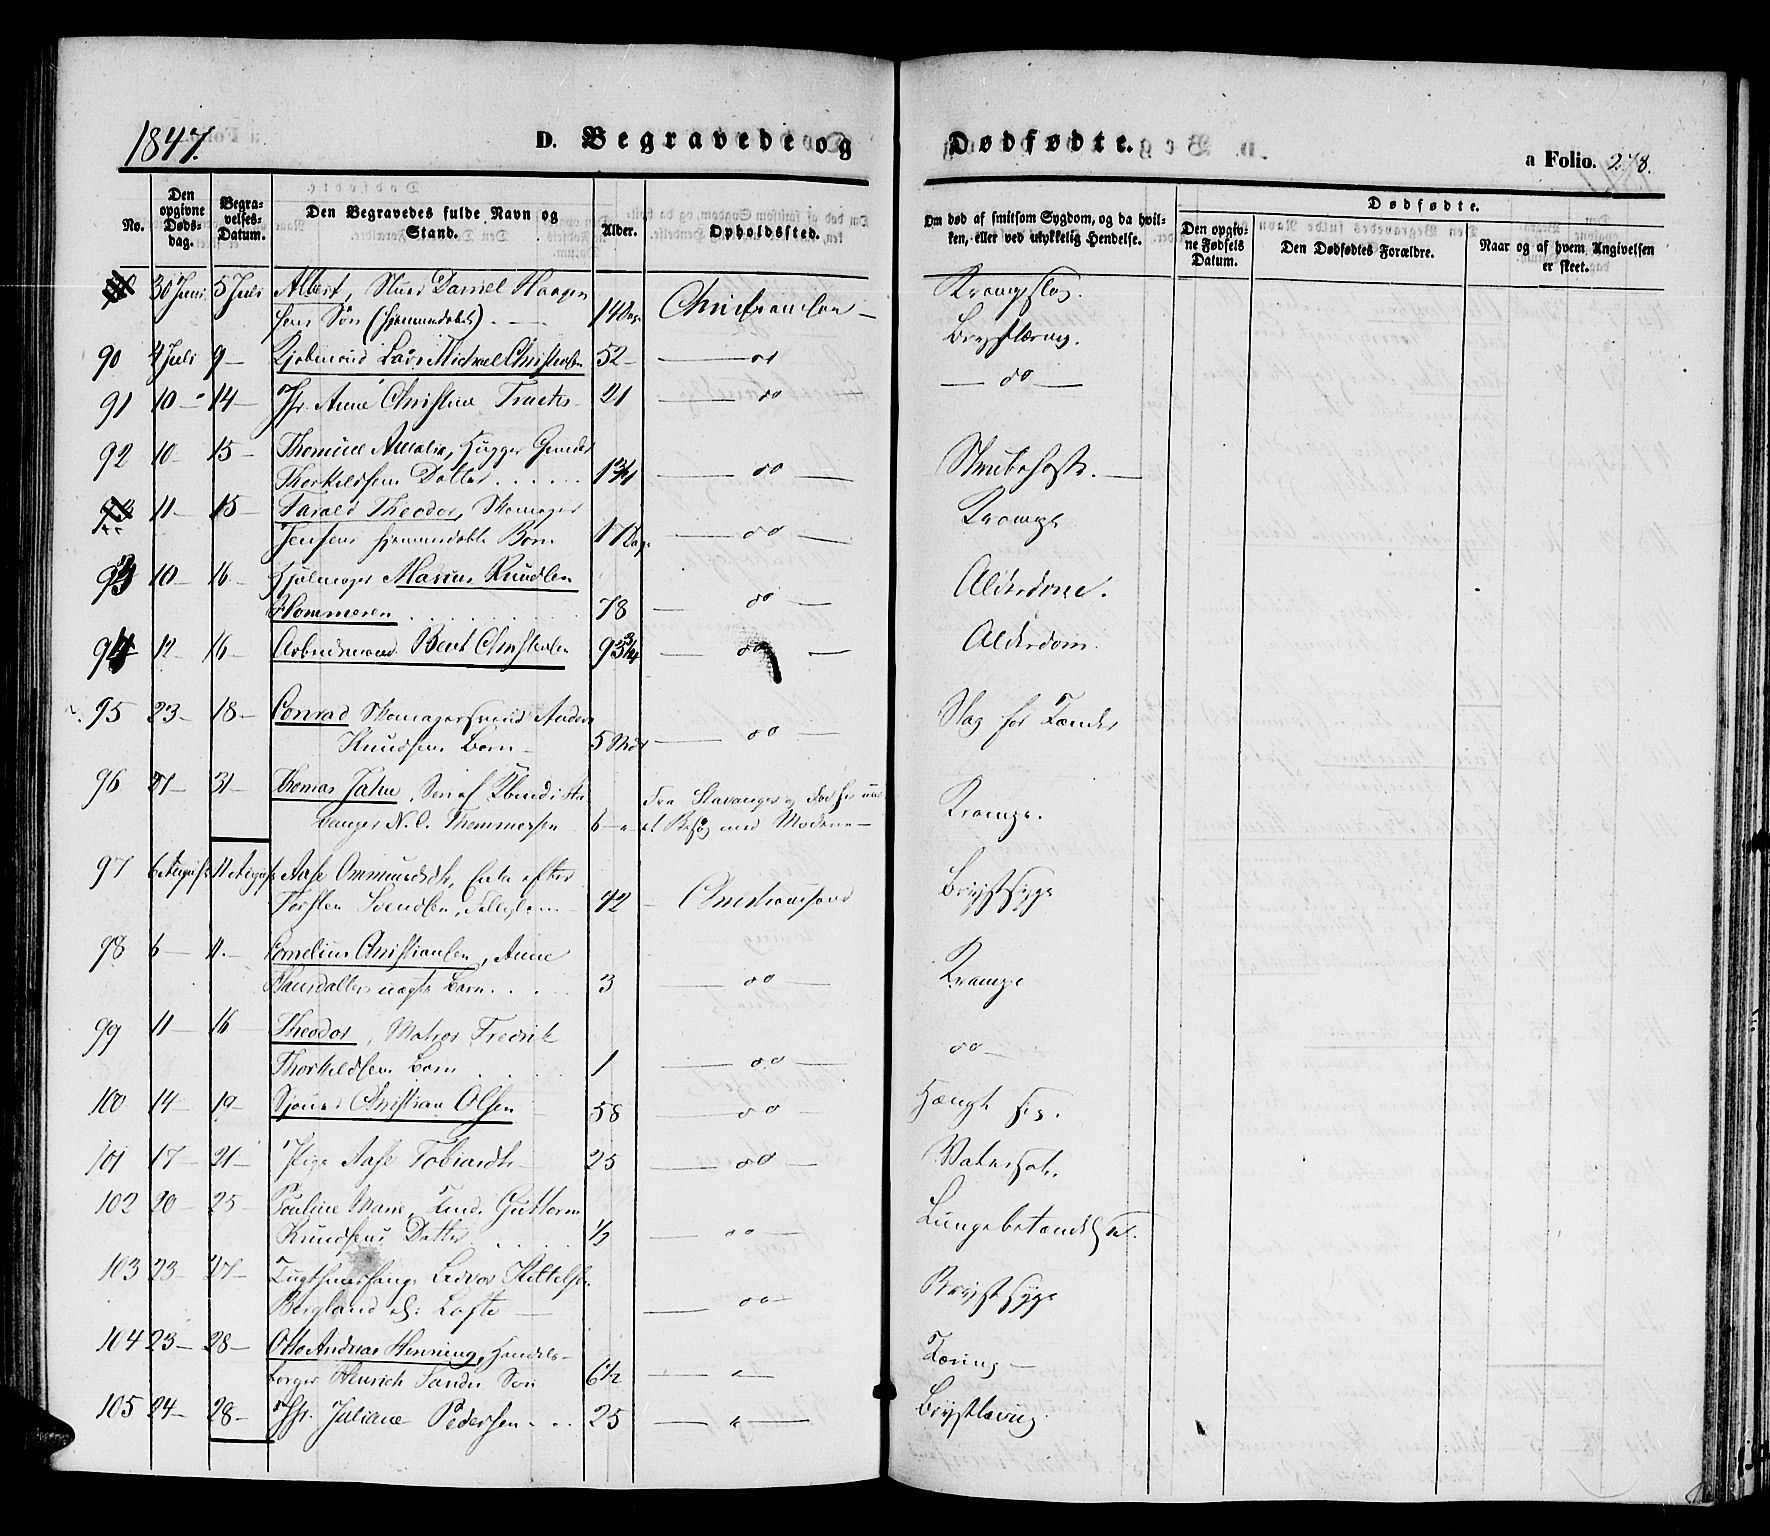 1847.
D. Begravede og Dødfødte.
a Folio. 278.
No.
Den opgivne Døds-dag.
Begra-velses-Datum.
Den Begravedes fulde Navn og Stand.
Alder.
Opholdssted.
Om død af smitsom Sygdom, og da hvil-ken, eller ved ulykkelig Hendelse.
Dødfødte.
Den opgiv-ne Fødsels Datum.
Den Dødfødtes Forældre.
Naar og af hvem Angivelsen er skeet.
30 Juni 5 Juli Albert, Daniel Haagen
sens Søn (hjemmedøbt) 14 Dage Christiansan Krampeslag.
90 4 Juli 9 Lars Michael Christensen 52 do Brysttæring.
91 10 14 Jfr. Anne Christine 21 do do
92 10 15 Thomine Amalia, Gunder
Thorkildsens Datter 1 3/4 do Strubehoste.
11 15 Tarald Theodor, Skomager
Jensens hjemmedøbte Barn 17 Dage do Krampe
93 10 16 Hjulmager Marius Knudsen
Hommeren 78 do Alderdom.
94 12 16 Arbeidsmand Bent Christensen 93 3/4 do Alderdom.
95 23 18 Conrad Skomagersvend Anders
Knudsens Barn 5 do Slag for Tænder
96 27 31 Thomas Jahn, Søn af
N. C. Thommesen 6 Fra Stavanger
et Besøg med Moderen Krampe.
97 6 August 11 August Aase Ommundsdtr, Enke efter
Torsten Svendsen, 42 Christiansand Brystsyge
98 6 11 Cornelius Christiansen, Anne
Hansdatters uægte Barn 3 do Krampe
99 11 16 Theodor, Matros Fredrik
Thorkildsens Barn 1 do do
100 14 19 Christian Olsen 58 do Hængt sig.
101 17 21 Pige Aase Tobiasdtr 25 do Vatersot.
102 20 25 Pauline Marie, Guttorm
Knudsens Datter 1/2 do Lungebetændelse.
103 23 27 Tugthusfange Leivor Kittelsen
Bergland do Brystsyge
104 23 28 Otto Andreas Henning, Handels-
borger Henrich Sanders Søn 6 1/2 " Tæring
105 24 28 Jfr. Juliane Pedersen 25 " Brysttæring